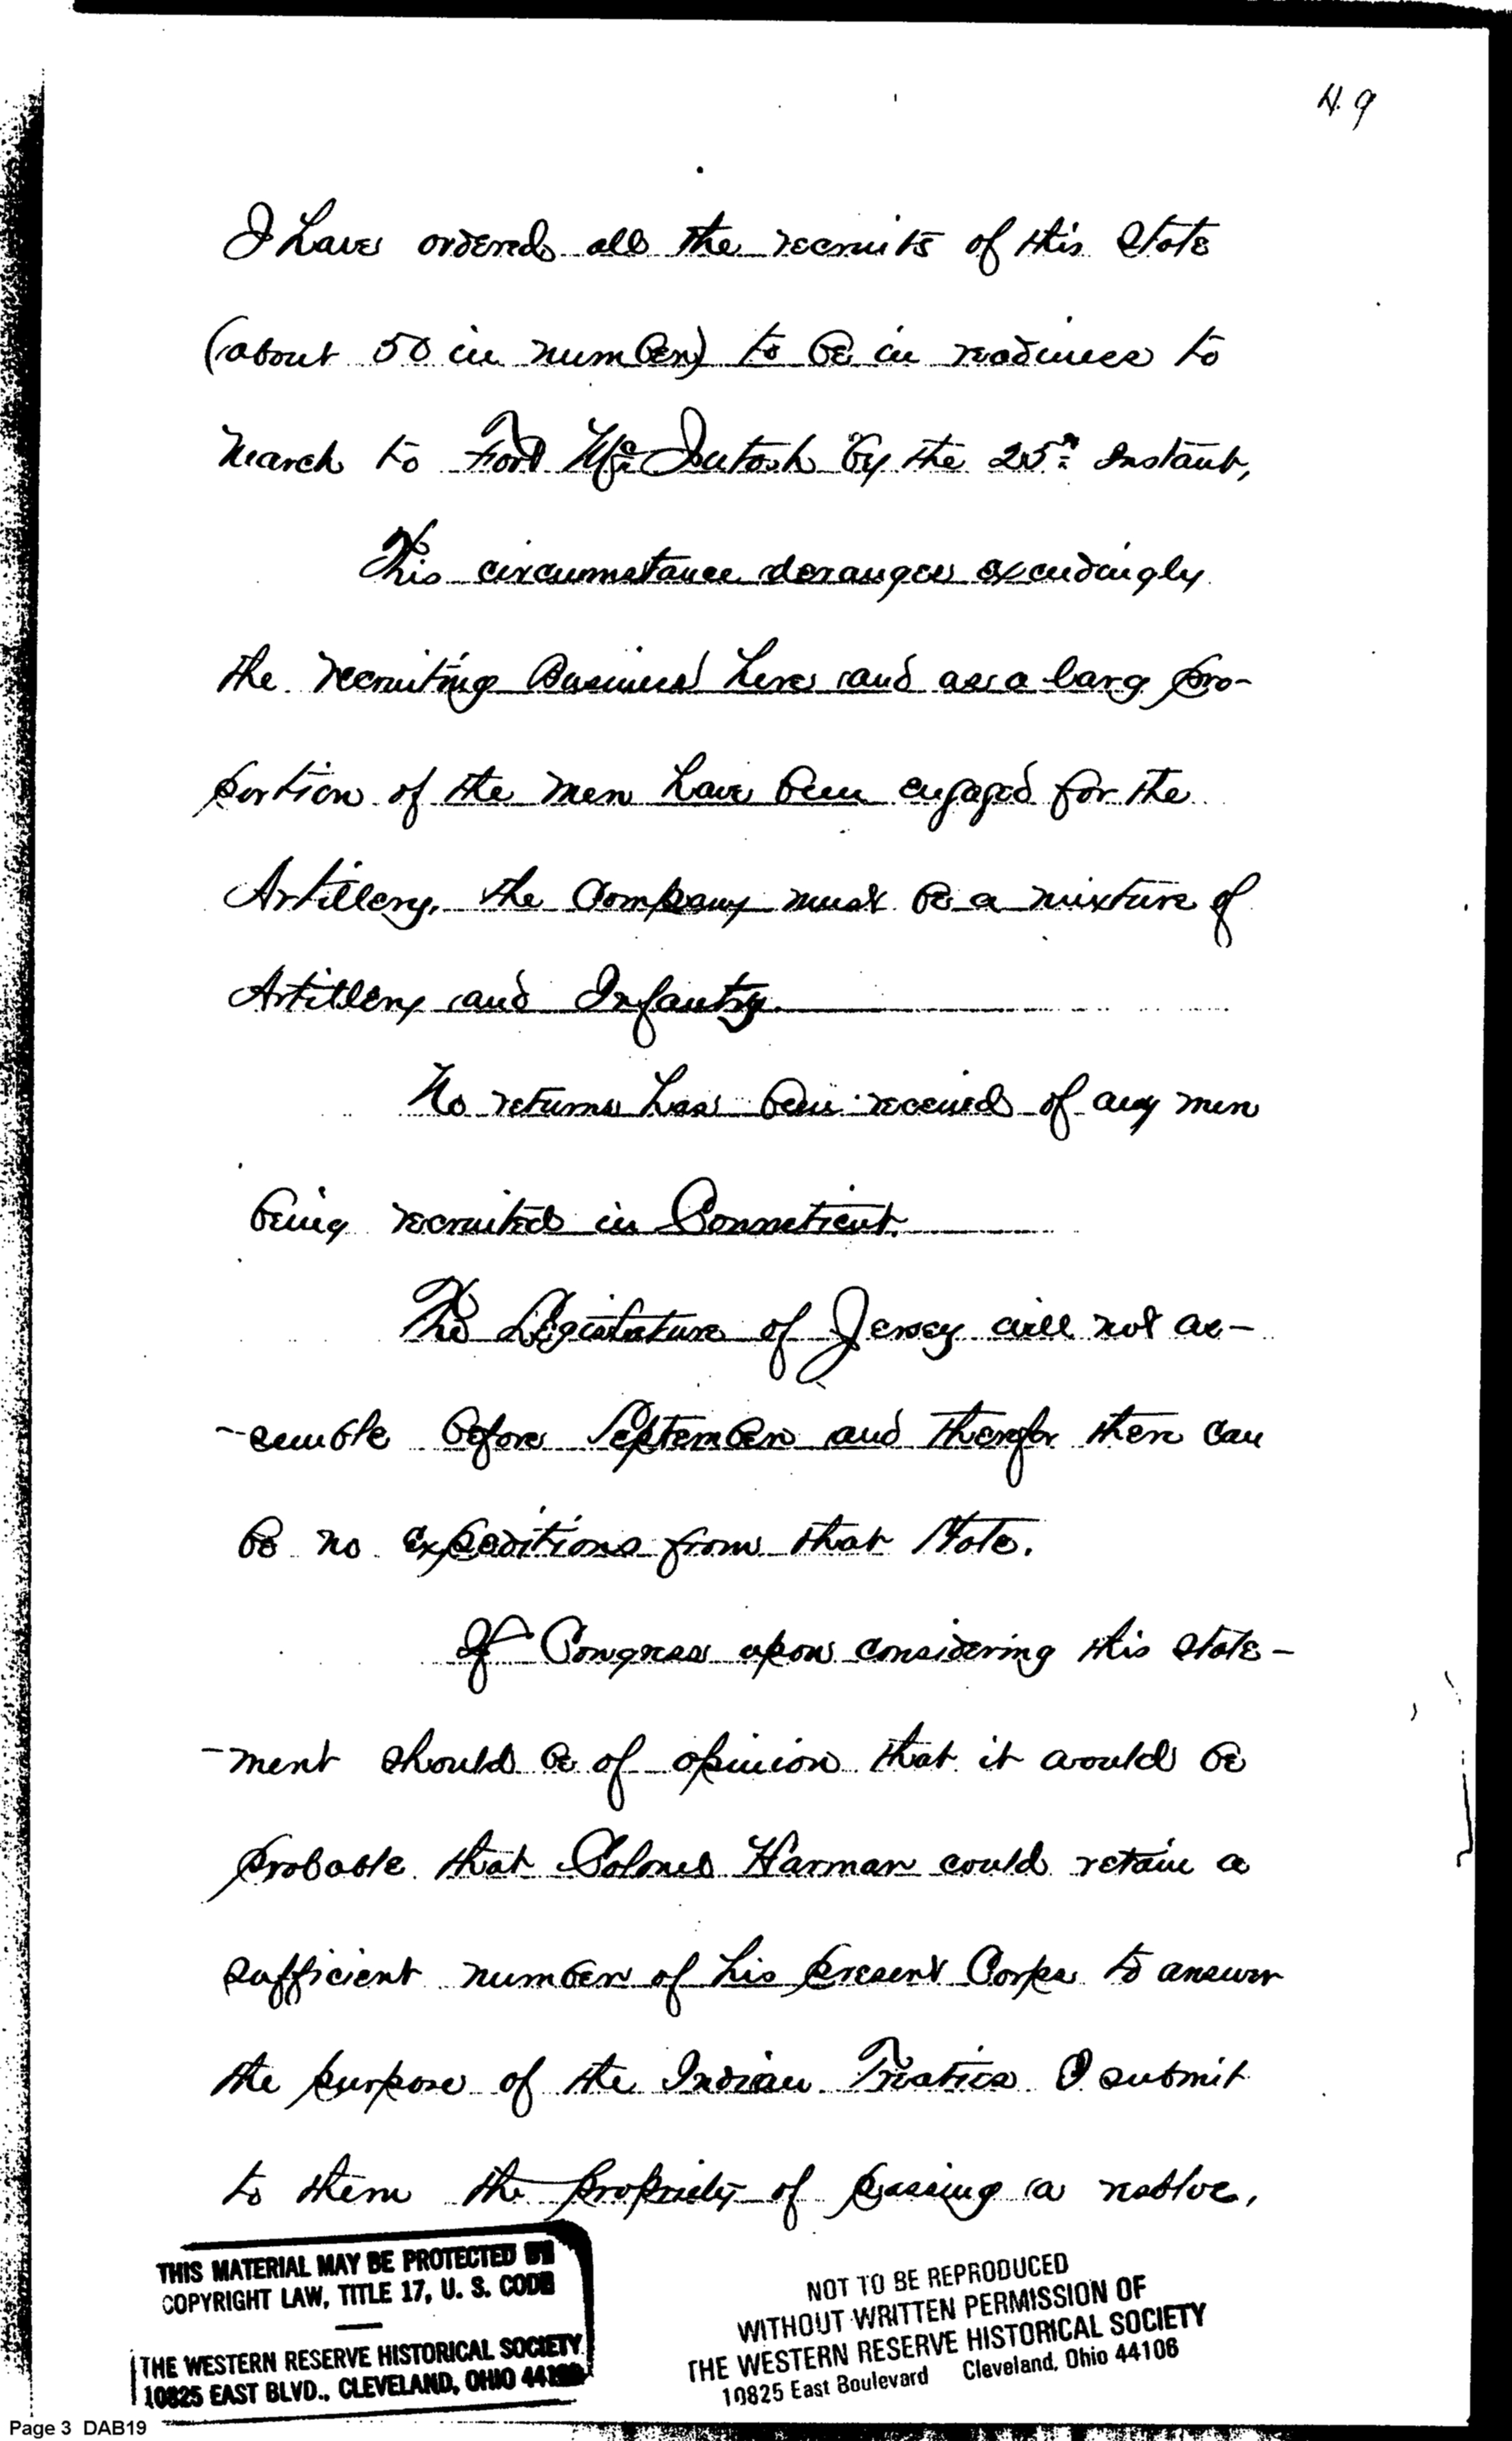 49
I have ordered all the recruits of this State
(about 50 in number) to be in readiness to
march to Fort McIntosh by the 25th Instant,
This circumstance deranges exceedingly
the recruiting Business here and as a larg pro-
portion of the men have been engaged for the
Artillery, the Company must be a mixture of
Artillery and Infantry.
No returns has been received of any men
being recruited in Conneticut.
The Legislature of Jersey will not as-
-semble before September and therefor there can
be no expeditions from that State.
If Congress upon considering this state-
-ment should be of opinion that it would be
probable that Colonel Harman could retain a
sufficient number of his present Corps to answer
the purpose of the Indian Treaties I submit
to them the propriety of passing a resolve,
THIS MATERIAL MAY BE PROTECTED BY
COPYRIGHT LAW, TITLE 17, U. S. CODE
THE WESTERN RESERVE HISTORICAL SOCIETY
10825 EAST BLVD., CLEVELAND, OHIO
NOT TO BE REPRODUCED
WITHOUT WRITTEN PERMISSION OF
THE WESTERN RESERVE HISTORICAL SOCIETY
10825 East Boulevard Cleveland, Ohio 44106
Page 3 DAB19